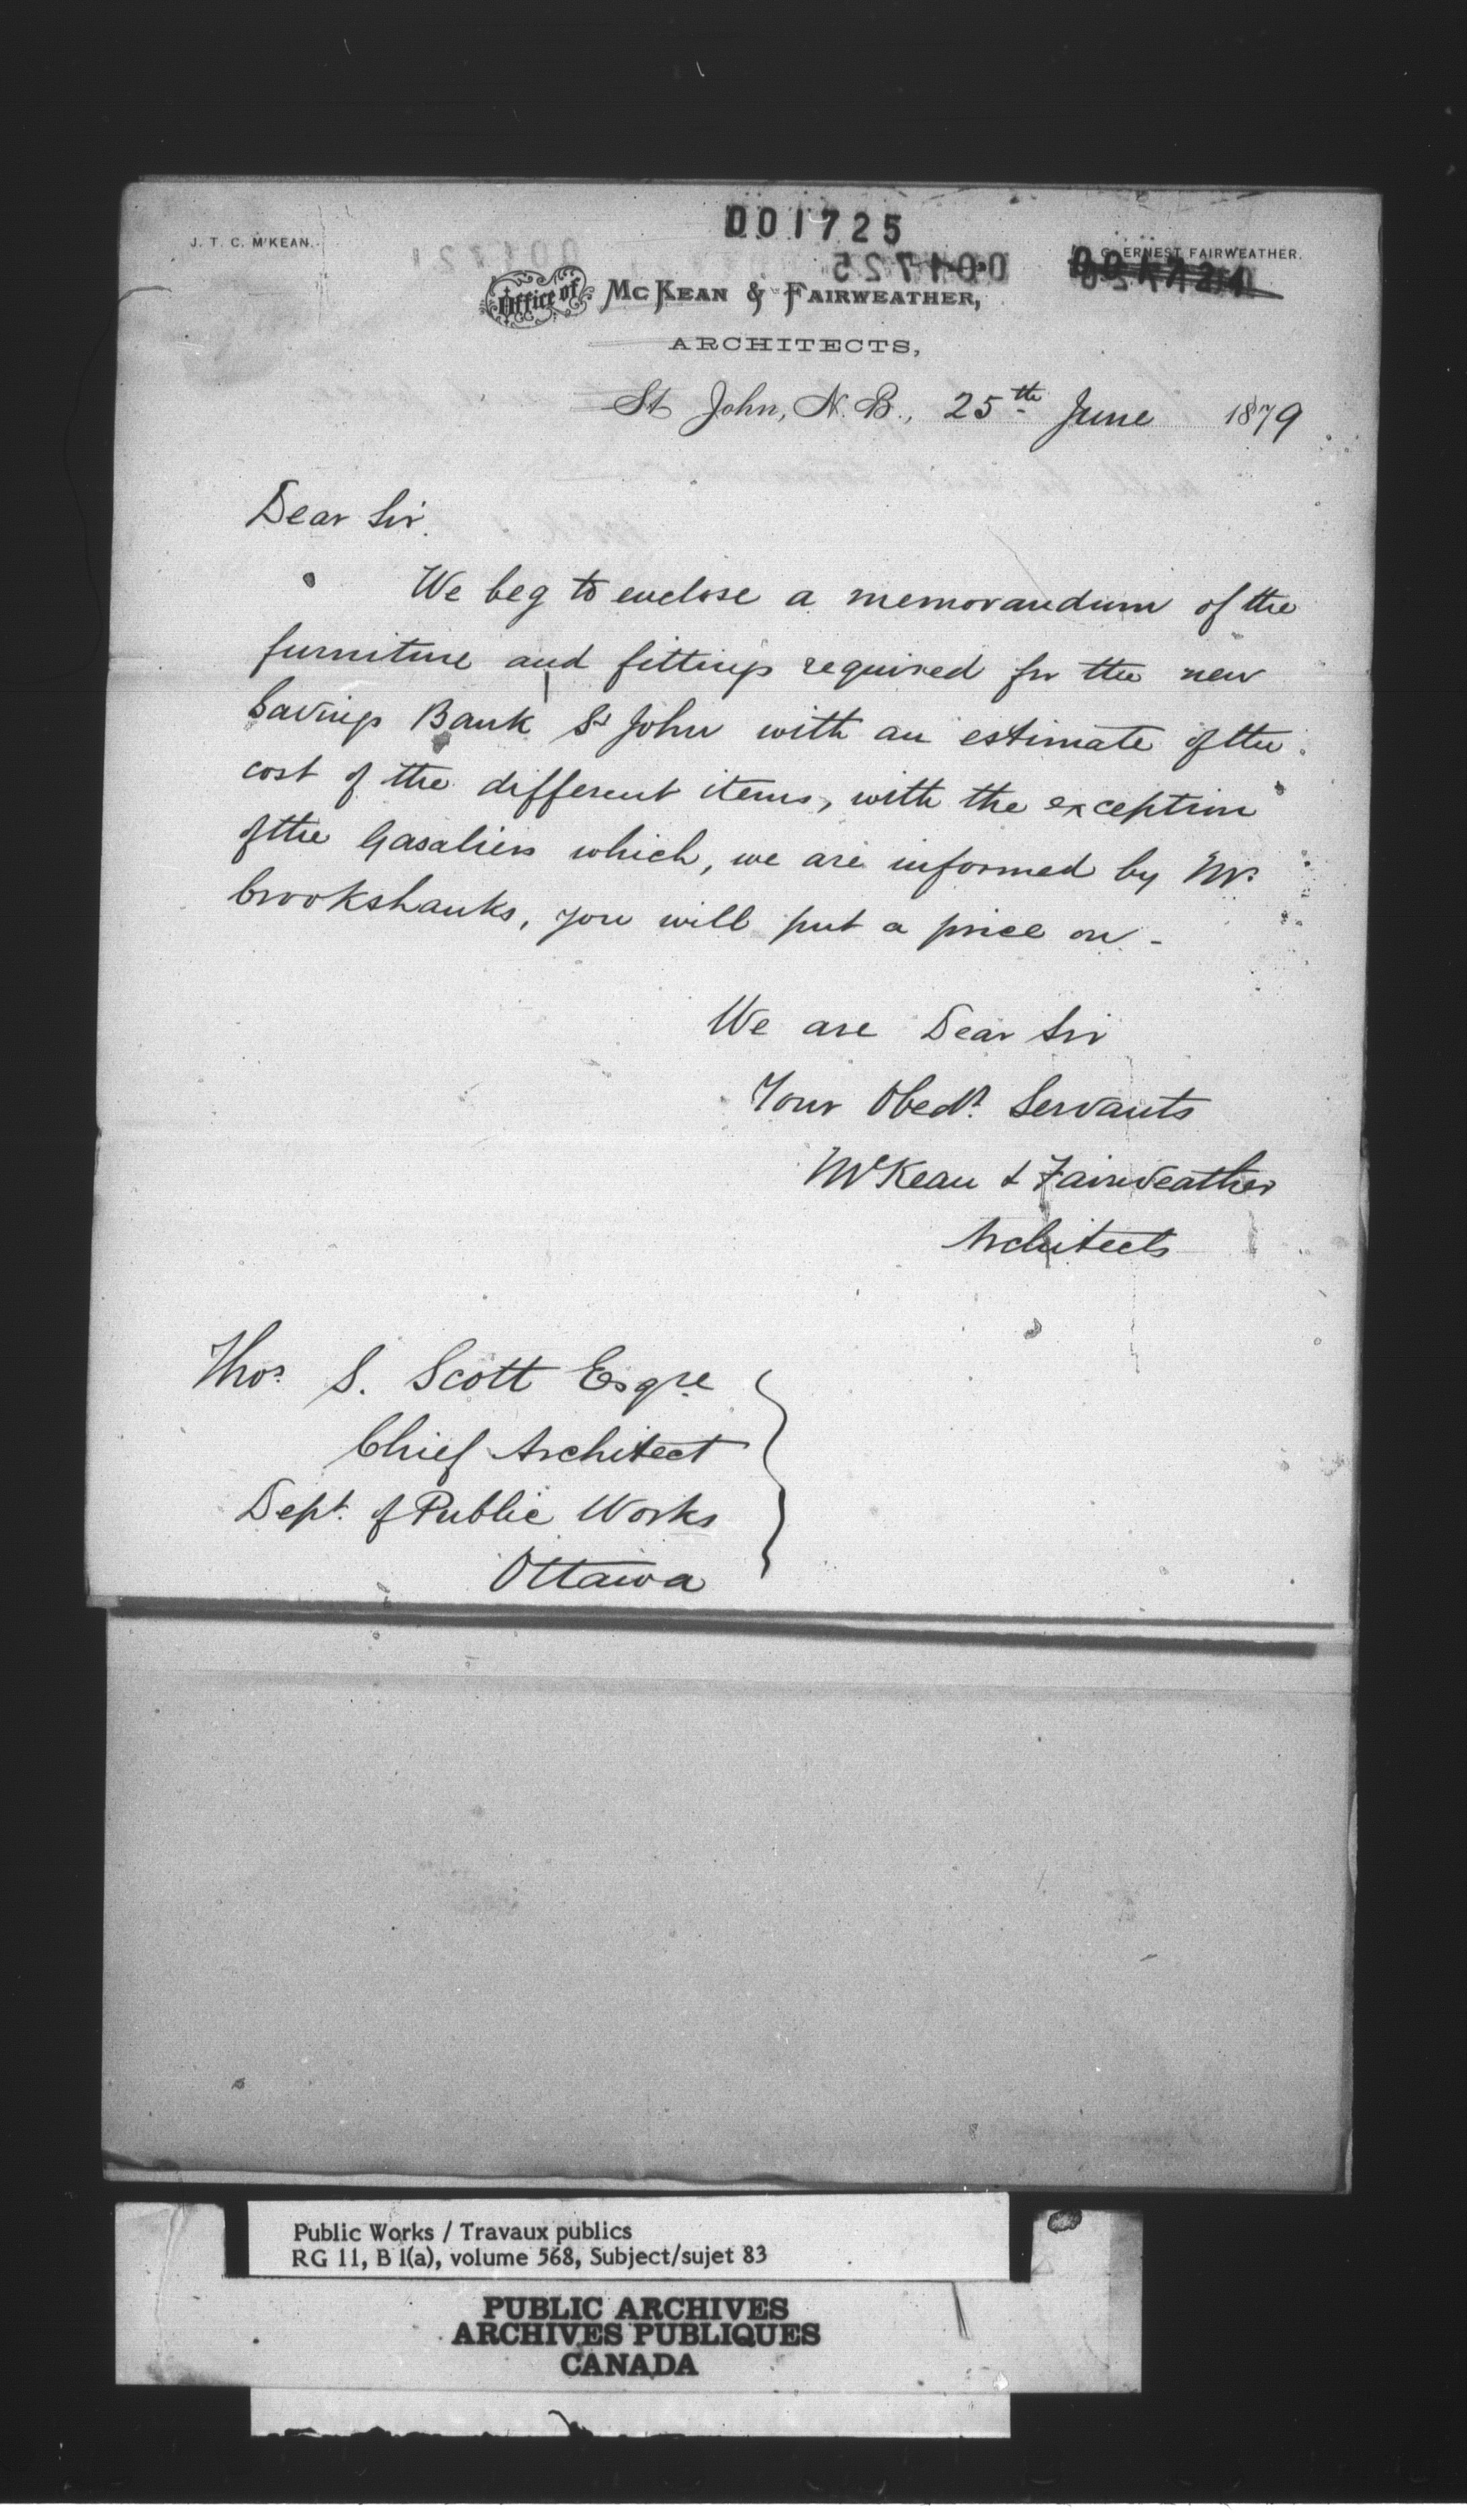 001725
J. T. C. M'KEAN.
G. ERNEST FAIRWEATHER.
Office of McKean & Fairweather,
ARCHITECTS,
St John, N. B., 25th June 1879
Dear Sir.
We beg to enclose a memorandum of the
furniture and fittings required for the new
Savings Bank St John with an estimate of the
cost of the different items, with the exception
of the Gasaliers which, we are informed by Mr.
Crookshanks, you will put a price on -
We are Dear Sir
Your Obedt. Servants
McKean & Fairweather
Architects
Thos. S. Scott Esqre
Chief Architect
Dept. of Public Works
Ottawa
Public Works / Travaux publics
RG 11, B 1(a), volume 568, Subject/sujet 83
PUBLIC ARCHIVES
ARCHIVES PUBLIQUES
CANADA